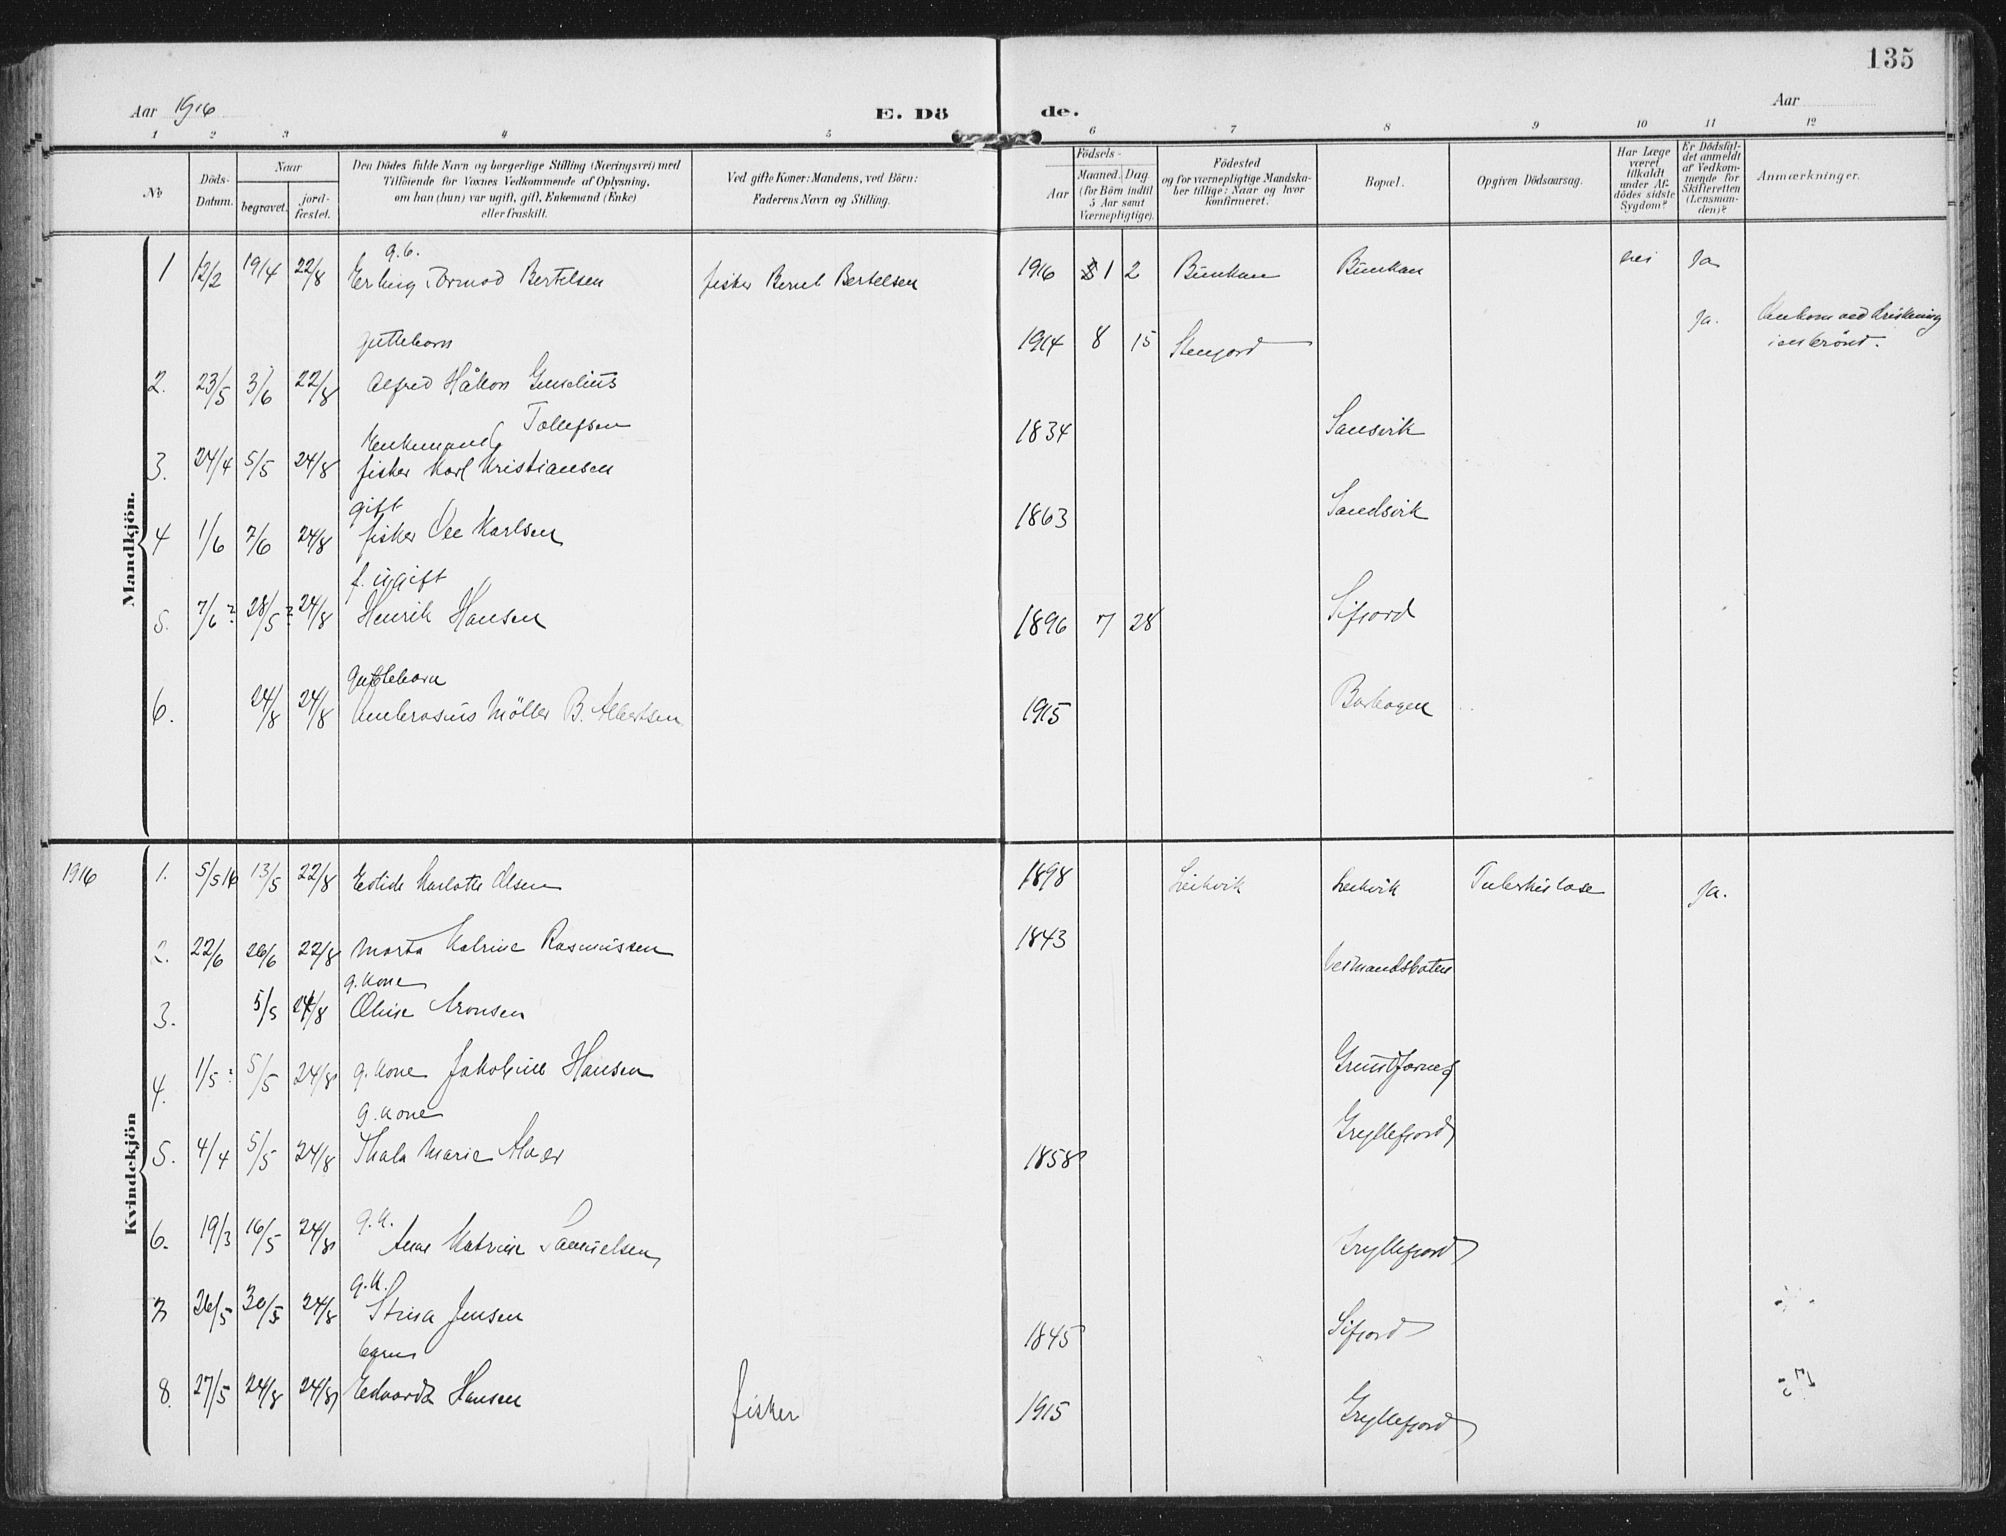 135
Aar 1916
E. Döde.
Aar
1 2 3 4 5 6 7 8 9 10 11 12
No
Döds-Datum.
Naar
begravet.
jord-fæstet.
Den Dödes fulde Navn og borgerlige Stilling (Næringsvei) med
Tilföiende for Voxnes Vedkommende af Oplysning,
om han (hun) var ugift, gift, Enkemand (Enke)
eller fraskilt.
Ved gifte Koner: Mandens, ved Börn:
Faderens Navn og Stilling.
Födsels-
Aar
Maaned. Dag
(for Börn indtil
5 Aar samt
Værnepligtige).
Födested
og for værnepligtige Mandska-
ber tillige: Naar og hvor
konfirmeret.
Bopæl.
Opgiven Dödsaarsag.
Har Læge
været
tilkaldt
under Af-
dödes sidste
Sygdom?
Er Dödsfal-
det anmeldt
af Vedkom-
mende for
Skifteretten
(Lensman-
den)?
Anmærkninger.
Mandkjön.
g.b.
1 12/2 19/4 22/8 Erling Tormod Bertelsen fisker Bernt Bertelsen 1916 1 2 Bunkan Bunkan nei Ja
guttebarn
2. 23/5 3/6 22/8 Alfred Håkon
Tollefsen 1914 8 15 Stenfjord Ja.
Enkemand
3. 24/4 5/5 24/8 fisker Karl Kristiansen 1834
gift
4 1/6 7/6 24/8 fisker Ole Karlsen 1863 Sandsvik
f. ugift
5. 7/6? 28/5? 24/8 Henrik Hansen 1896 7 28 Sifjord
Guttebarn
6. 24/8 24/8 Ambrosius Möller B. Albertsen 1915
Kvindekjön
1916 1. 5/5 16 13/5 22/8 Karlotte Olsen 1898 Leikvik Leikvik Tuberkulose Ja.
2. 22/6 26/6 22/8 Marta Katrine Rasmussen 1843
g. kone
3. 5/5 24/8 Oluise Aronsen
4. 1/5? 5/5 24/8 g. kone Jakobine Hansen
g. kone
5. 4/4 5/5 24/8 Thala Marie 1858 Gryllefjord
g.k.
6. 19/3 16/5 24/8 Ane Katrine Samuelsen Gryllefjord
g.k.
7 26/5 30/5 24/8 Stina Jensen 1845 Sifjord
barn
8. 27/5 24/8 24/8 Edvarda Hansen fisker 1915 Gryllefjord